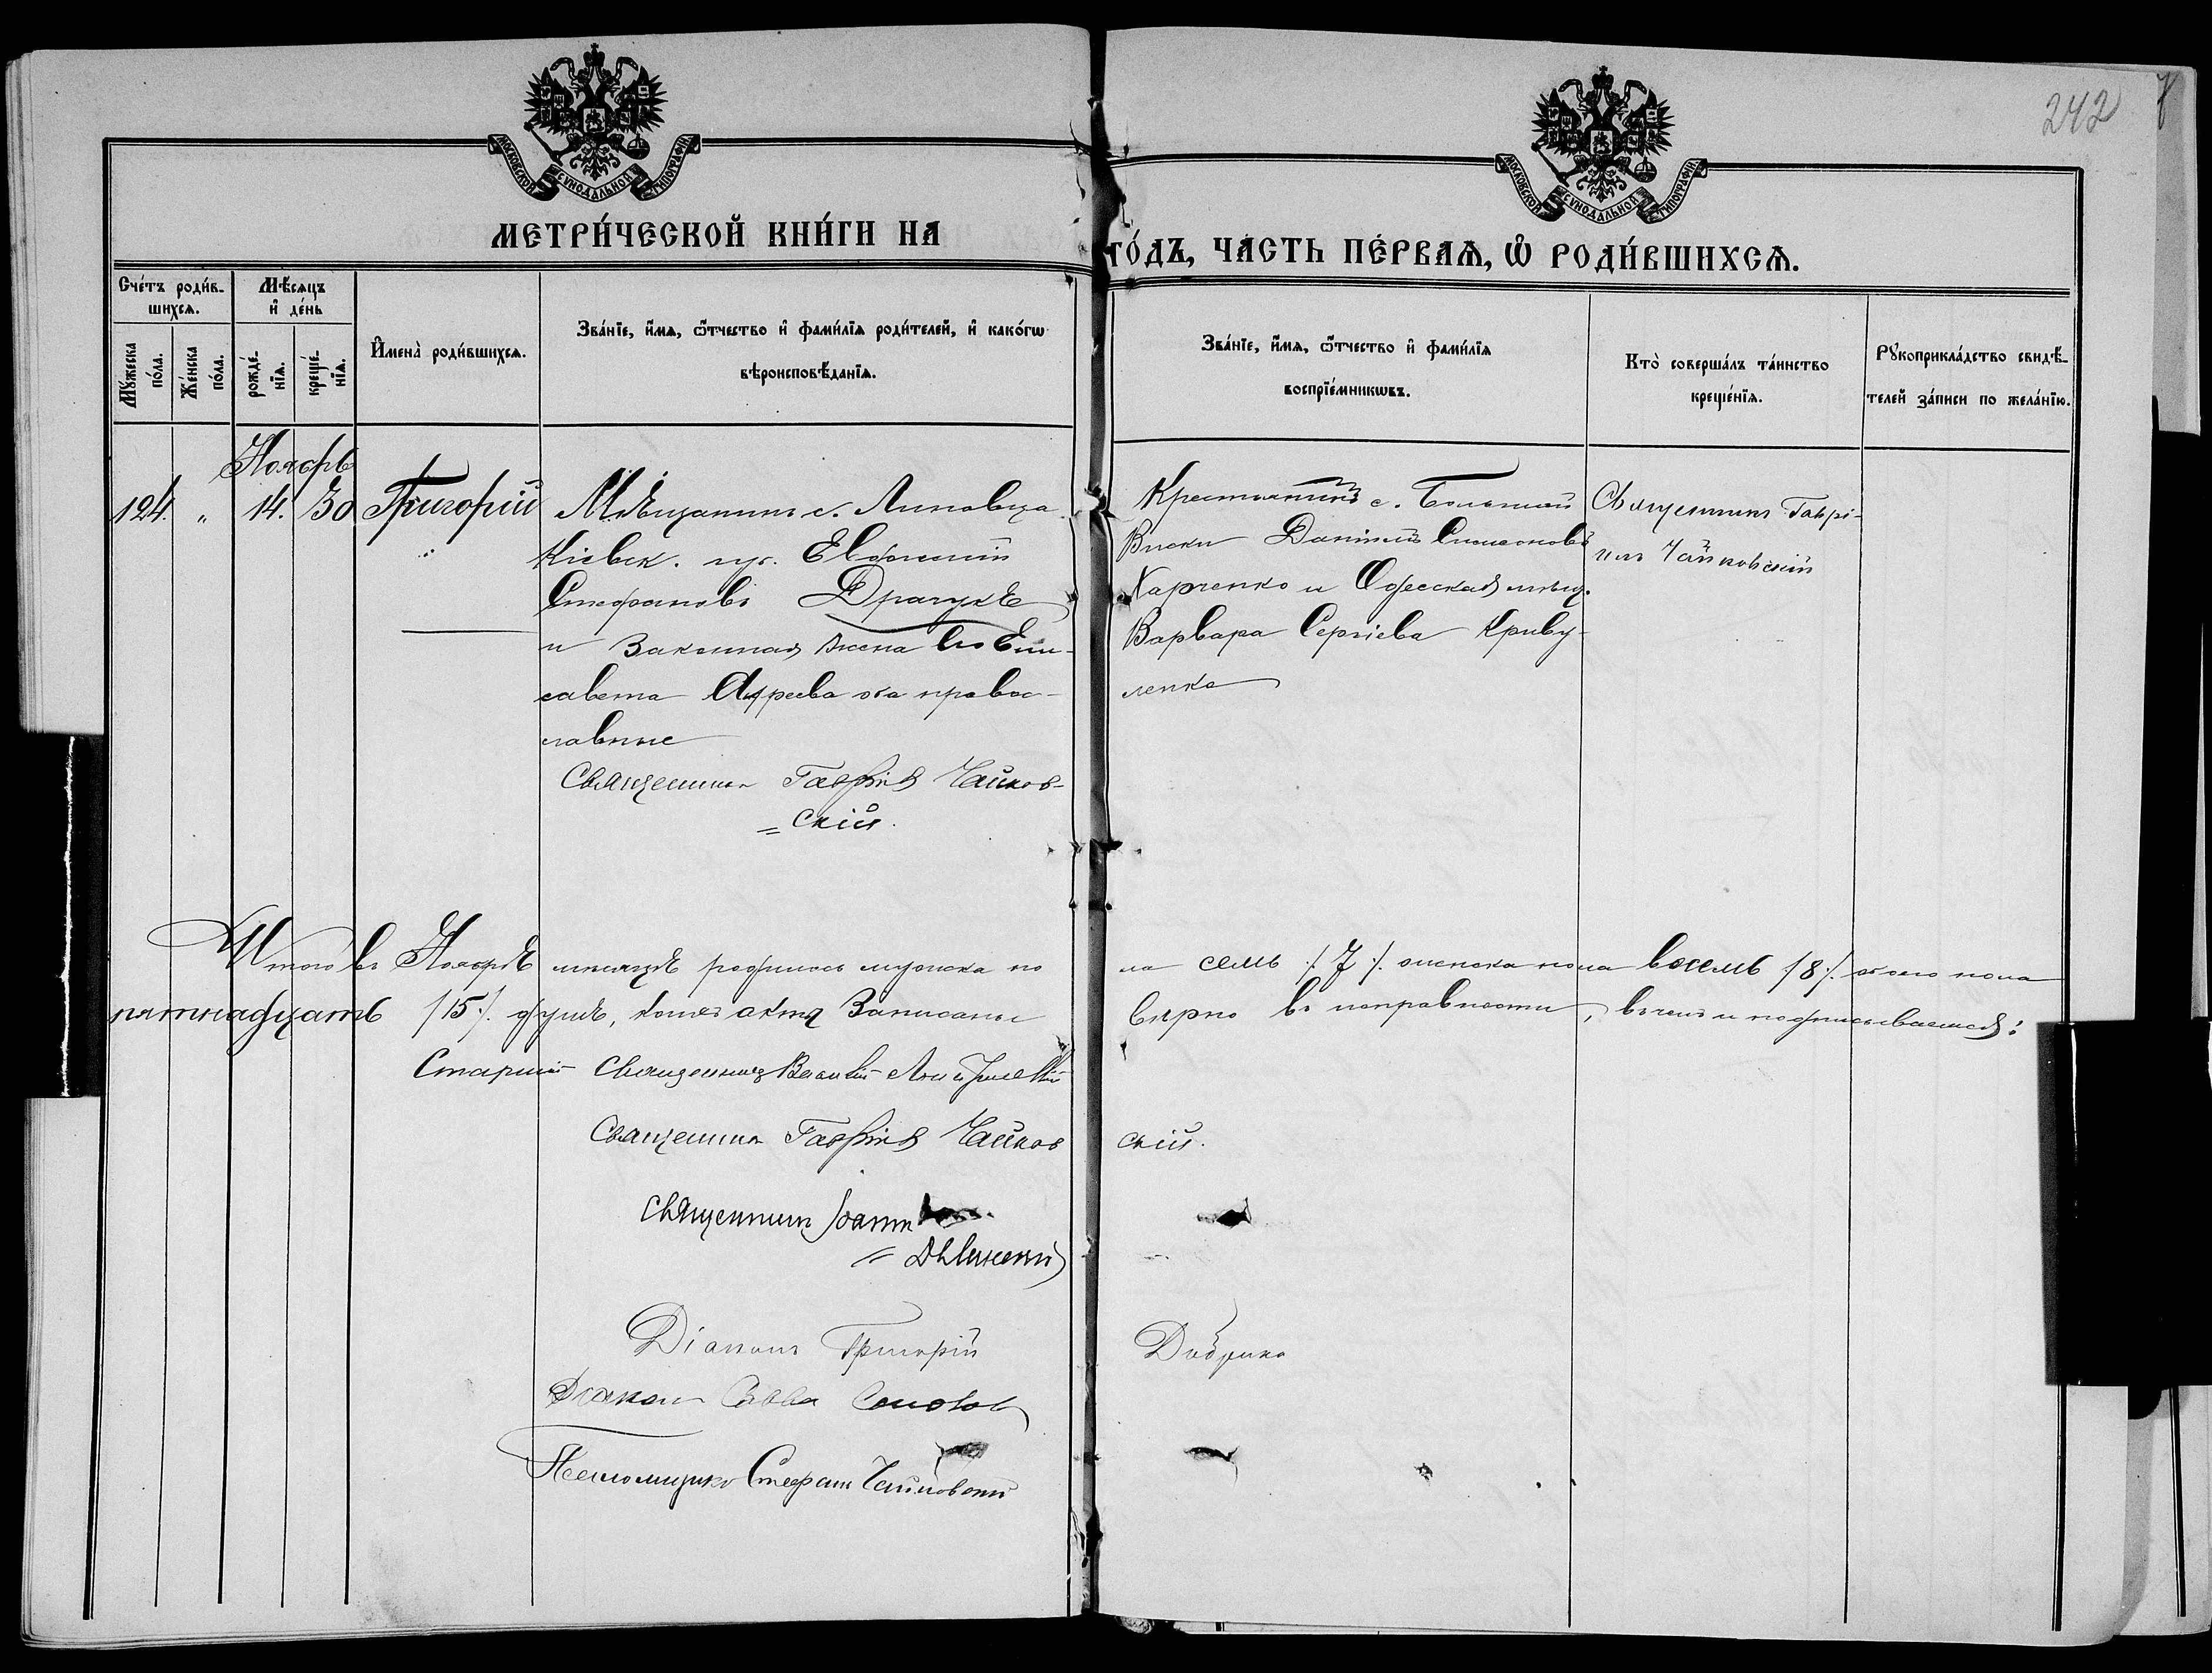 242
МОСКОВСКОЙ СУНОДАЛЬНОЙ ТИПОГРАФІИ
МОСКОВСКОЙ СУНОДАЛЬНОЙ ТИПОГРАФІИ
МЕТРИ́ЧЕСКОЙ КНИ́ГИ НА
ГО́ДЪ, ЧА́СТЬ ПЕ́РВАѦ, Ѡ҆ РОДИ́ВШИХСѦ.
Сче́тъ роди́в-
шихсѧ.
Мѣ́сѧцъ
и҆ де́нь
Мꙋ́жеска
по́ла.
Же́нска
по́ла.
рожде́-
нїѧ.
креще́-
нїѧ.
И҆мена̀ роди́вшихсѧ.
Зва́нїе, и҆́мѧ, ѻ҆́тчество и҆ фами́лїѧ роди́телей, и҆ како́гѡ
вѣроисповѣ́данїѧ.
Зва́нїе, и҆́мѧ, ѻ҆́тчество и҆ фами́лїѧ
воспрїе́мникѡвъ.
Кто̀ соверша́лъ та́инство
креще́нїѧ.
Рꙋкоприкла́дство свидѣ́-
телей за́писи по жела́нїю.
Ноябрь
124. „ 14. 30 Григорій
Мѣщанинъ г. Липовца
Кіевск. губ. Евфимій
Стефановъ Драчукъ
и законная жена его Ели-
савета Андреева оба правос-
лавные
Священникъ Гавріилъ Чайков-
= скій.
Крестьянинъ с. Большой
Виски Даніилъ Симеоновъ
Харченко и Одесская мѣщ.
Варвара Сергіева Криву-
ленко
Священникъ Гаврі-
илъ Чайковскій
Итого въ Ноябрѣ мѣсяцѣ родилось мужска по
ла семь /.7/. женска пола восемь /.8/. обоего пола
пятнадцать /15/. душъ, коихъ акты записаны
вѣрно въ исправности, въ чемъ и подписываемся:
Старшій Священникъ Василій
Священникъ Гавріилъ Чайков
скій.
Священникъ Іоаннъ
Діаконъ Григорій
Діаконъ Савва
Псаломщикъ Стефанъ Чайковскій